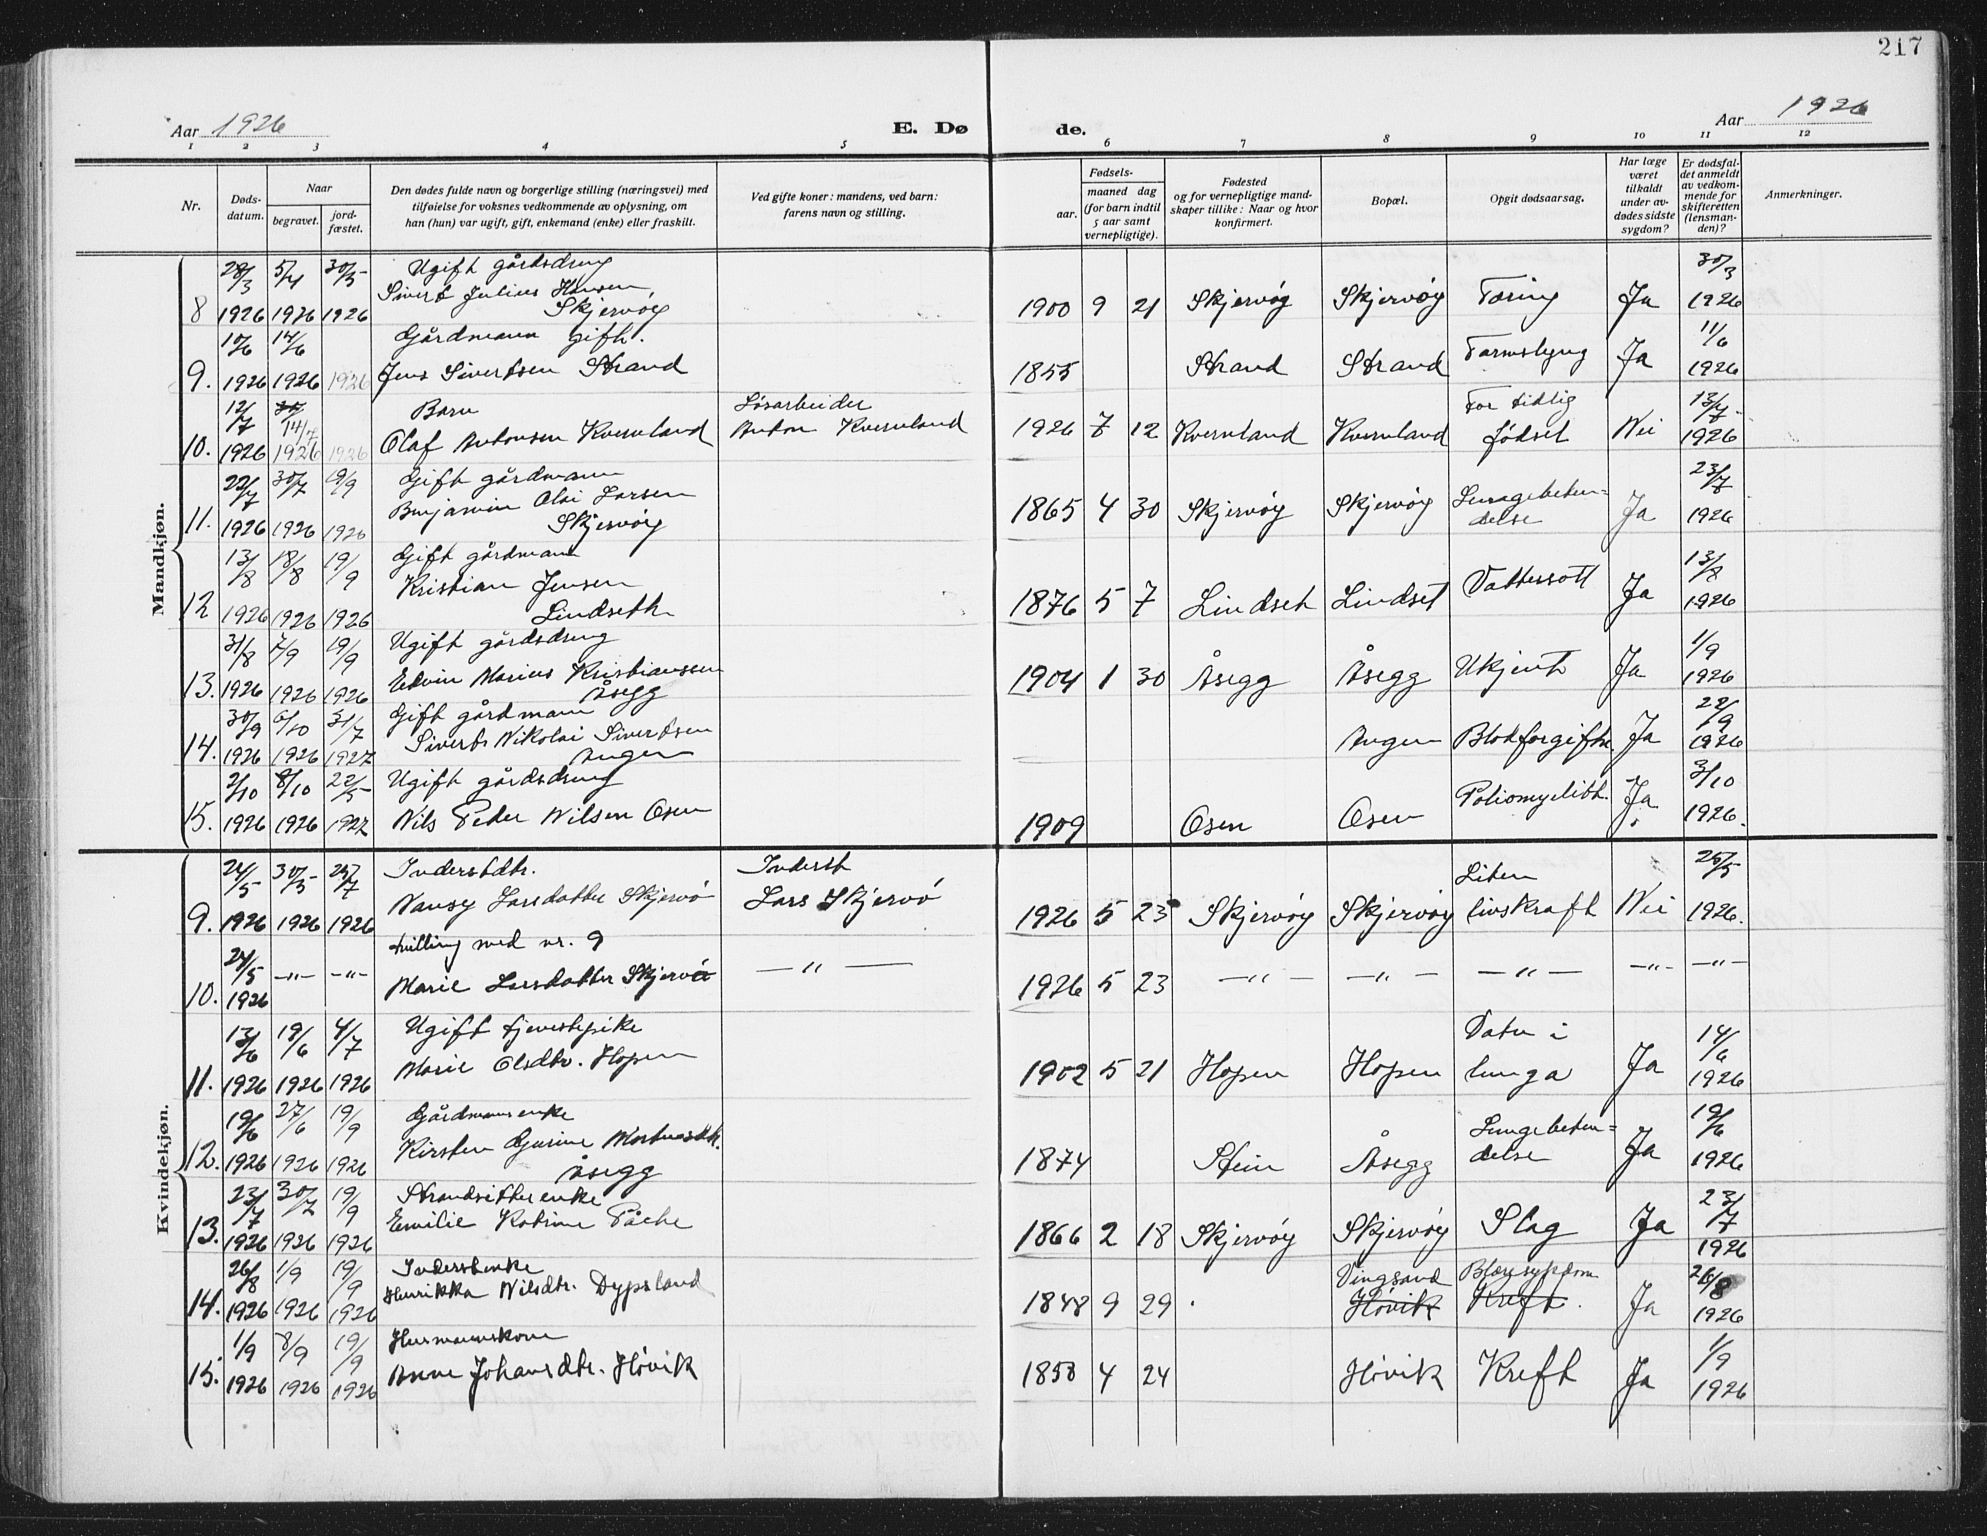 217
Aar 1926
E. Dø
de.
Aar 1926
1 2 3 4 5 6 7 8 9 10 11 12
Nr.
Døds-
datum.
Naar
begravet.
jord-
fæstet.
Den dødes fulde navn og borgerlige stilling (næringsvei) med
tilføielse for voksnes vedkommende av oplysning, om
han (hun) var ugift, gift, enkemand (enke) eller fraskilt.
Ved gifte koner: mandens, ved barn:
farens navn og stilling.
Fødsels-
aar.
maaned dag
(for barn indtil
5 aar samt
vernepligtige).
Fødested
og for vernepligtige mand-
skaper tillike: Naar og hvor
konfirmert.
Bopæl.
Opgit dødsaarsag.
Har læge
været
tilkaldt
under av-
dødes sidste
sygdom?
Er dødsfal-
det anmeldt
av vedkom-
mende for
skifteretten
(lensman-
den)?
Anmerkninger.
Mandkjøn.
28/3 5/4 30/5 Ugift gårdsdreng 30/3
Sivert Julius Hansen
8 1926 1926 1926 Skjervøy 1900 9 21 Skjervøy Skjervøy Tæring Ja 1926
10/6 14/6 Gårdmann gift. 11/6
9. 1926 1926 1926 Jens Sivertsen Strand 1855 Strand Strand Tarmslyng Ja 1926
12/7 14/7 Barn Løsarbeider For tidlig 13/7
10. 1926 1926 1926 Olaf Antonsen Kvernland Anton Kvernland 1926 7 12 Kvernland Kvernland fødset Nei 1926
22/7 30/7 19/9 Gift gårdmann 23/7
Benjamin Olai Larsen Lungebeten-
11. 1926 1926 1926 Skjervøy 1865 4 30 Skjervøy Skjervøy delse Ja 1926
13/8 18/8 19/9 Gift gårdmann 13/8
Kristian Jensen
12 1926 1926 1926 Lindseth 1876 5 7 Lindset Lindset Vattersott Ja 1926
31/8 7/9 19/9 Ugift gårdsdreng 1/9
Edvin Marius Kristianssen
13. 1926 1926 1926 Åsegg 1904 1 30 Åsegg Åsegg Ukjent Ja 1926
30/9 6/10 31/7 Gift gårdmann 22/9
Sivert Nikolai Sivertsen
14. 1926 1926 1927 Angen Angen Blodforgiftn. Ja 1926
2/10 8/10 22/5 Ugift gårdsdreng 3/10
15. 1926 1926 1927 Nils Peder Nilsen Osen 1909 Osen Osen Poliomyelith. Ja 1926.
Kvindekjøn.
24/5 30/5 25/7 Inderstdtr. Inderst Liten 25/5
9. 1926 1926 1926 Nansy Larsdatter Skjervø Lars Skjervø 1926 5 23 Skjervøy Skjervøy livskraft Nei 1926.
24/5 tvilling med nr. 9
10. 1926 -"- -"- Marie Larsdatter Skjervø -"- 1926 5 23 -"- -"- -"- -"- -"-
13/6 19/6 4/7 Ugift tjenestepike Vatn i 14/6
11. 1926 1926 1926 Marie Olsdtr. Hopen 1902 5 21 Hopen Hopen lunga Ja 1926
19/6 27/6 19/9 Gårdmannsenke Lungebeten- 19/6
Kirsten Gurine
12. 1926 1926 1926 Åsegg 1874 Stein Åsegg delse Ja 1926
23/7 30/7 19/9 Strandsitterenke 23/7
13. 1926 1926 1926 Emilie Katrine Påske 1866 2 18 Skjervøy Skjervøy Slag Ja 1926
26/8 1/9 19/9 Inderstenke Vingsand Blæresygdom 26/8
14. 1926 1926 1926 Henrikka Nilsdtr. Dypsland 1848 9 29 Høvik Kreft. Ja 1926
1/9 8/9 19/9 Husmannskone 1/9
15. 1926 1926 1926 Anne Johansdtr. Høvik 1858 4 24 Høvik Kreft Ja 1926